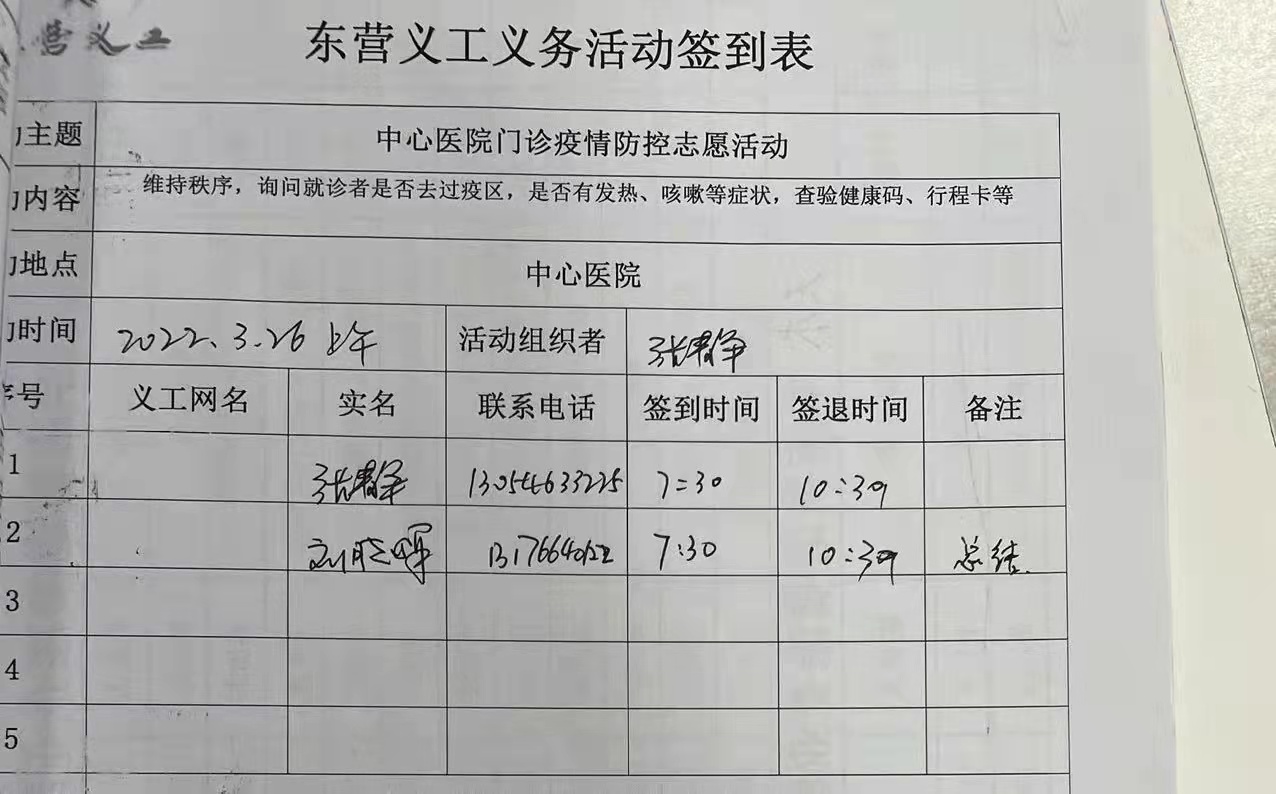 营义工
东营义工义务活动签到表
主题 中心医院门诊疫情防控志愿活动
内容 维持秩序，询问就诊者是否去过疫区，是否有发热、咳嗽等症状，查验健康码、行程卡等
地点 中心医院
时间 2022.3.26 上午 活动组织者 张静
序号 义工网名 实名 联系电话 签到时间 签退时间 备注
1 张静 13054633225 7:30 10:30
2 刘晓晖 7:30 10:30 总结
3
4
5